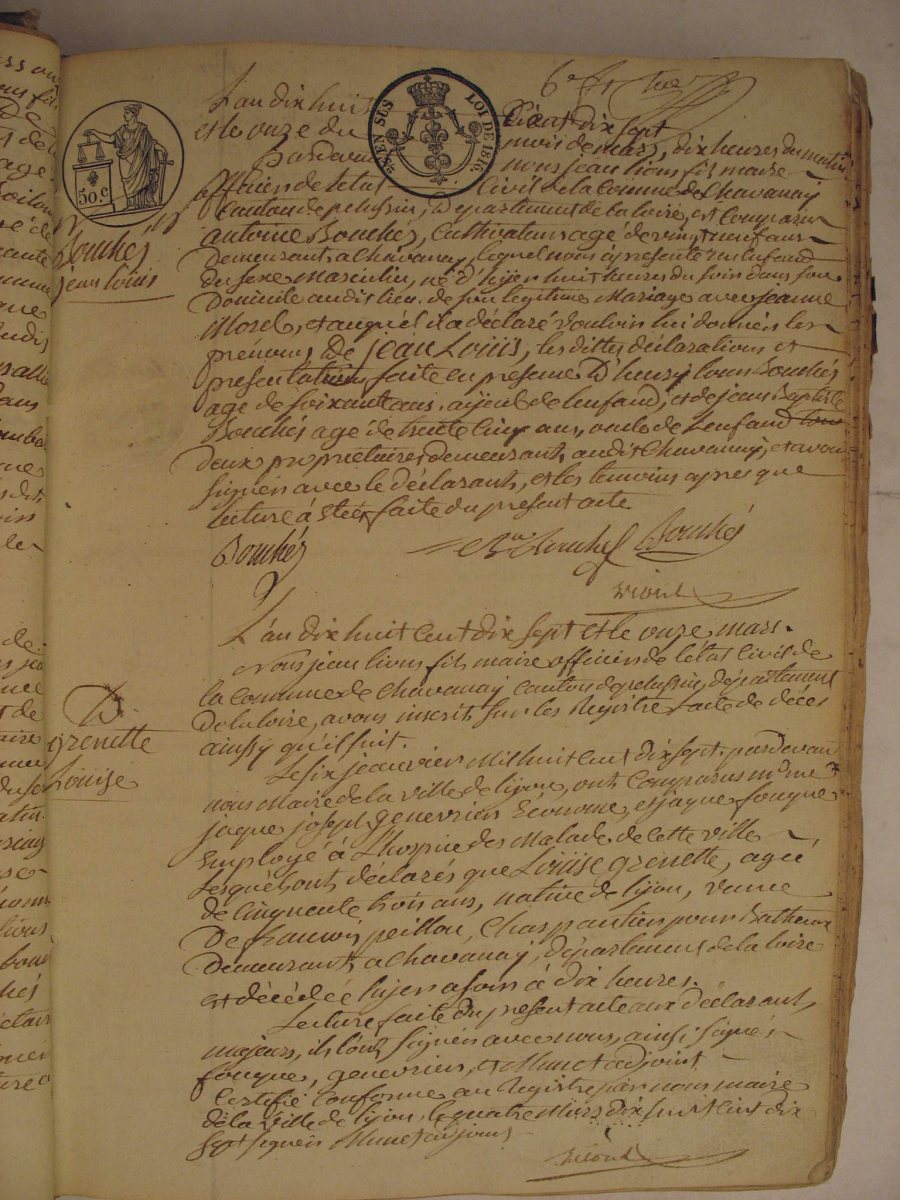 6e
L'an dix huit cent dix sept
et le onze du mois de mars, dix heures du matin
pardevant nous jean lions fils maire
officier de letat Civil de la Commune de Chavanay
Canton de pelussin, Departement de la loire, est Comparu
antoine Bouchés, Cultivateur agé de vingt neuf ans
Demeurant a Chavanay, lequel nous à presenté un enfant
du sexe masculin, né d'hyer huit heures du soir dans son
Domicile audit lieu de son legitime Mariage avec jeanne
Morel, et auquel il a déclaré vouloir lui donner les
prénoms De jean Louis, les dittes déclarations et
presentations faite en presence D' Louis Bouchés
agé de soixante ans ayeul de lenfand, et de jean Baptiste
Bouchés agé de trente cinq ans, oncle de Lenfand
deux proprietaires demeurant audit Chavanay, et avons
signés avec le déclarant, et les temoins apres que
lecture à été faite du present acte
50c.
LOI DE 1816.
Bouchés
jean louis
Bouchés Bouchés Bouchés
L'an dix huit cent dix sept et le onze mars.
Nous jean lions fils maire officier de letat Civil de
la Commune de Chavanay Canton de pelussin, departement
De la loire, avons inscrit sur les Registre lacte de décès
ainssy qu'il suit.
D.
grenette
Louise
Le six jeanvier Mil huit cent dix sept, pardevant
nous Maire de la ville de lyon, ont Comparus
jaque joseph genevrier Econome, et jaque fouque
Employé à L'hospice des Malade de cette ville
Lesquels ont déclarés que Louise grenette, agée
de Cinquante trois ans, native de lyon, veuve
De francois peillon, Charpantier pour Batteaux
Demeurant a Chavanay, département de la loire
est décédée hyer a soir à dix heures.
Lecture faite du present acte aux déclarant,
majeurs, ils l'ont signés avec nous, ainsi signés
fouque, genevrier, et Munet adjoint
Certifié Conforme au Registre par nous maire
de la ville de lyon, le quatre Mars dix huit cent dix
Sept signés Munet adjoint